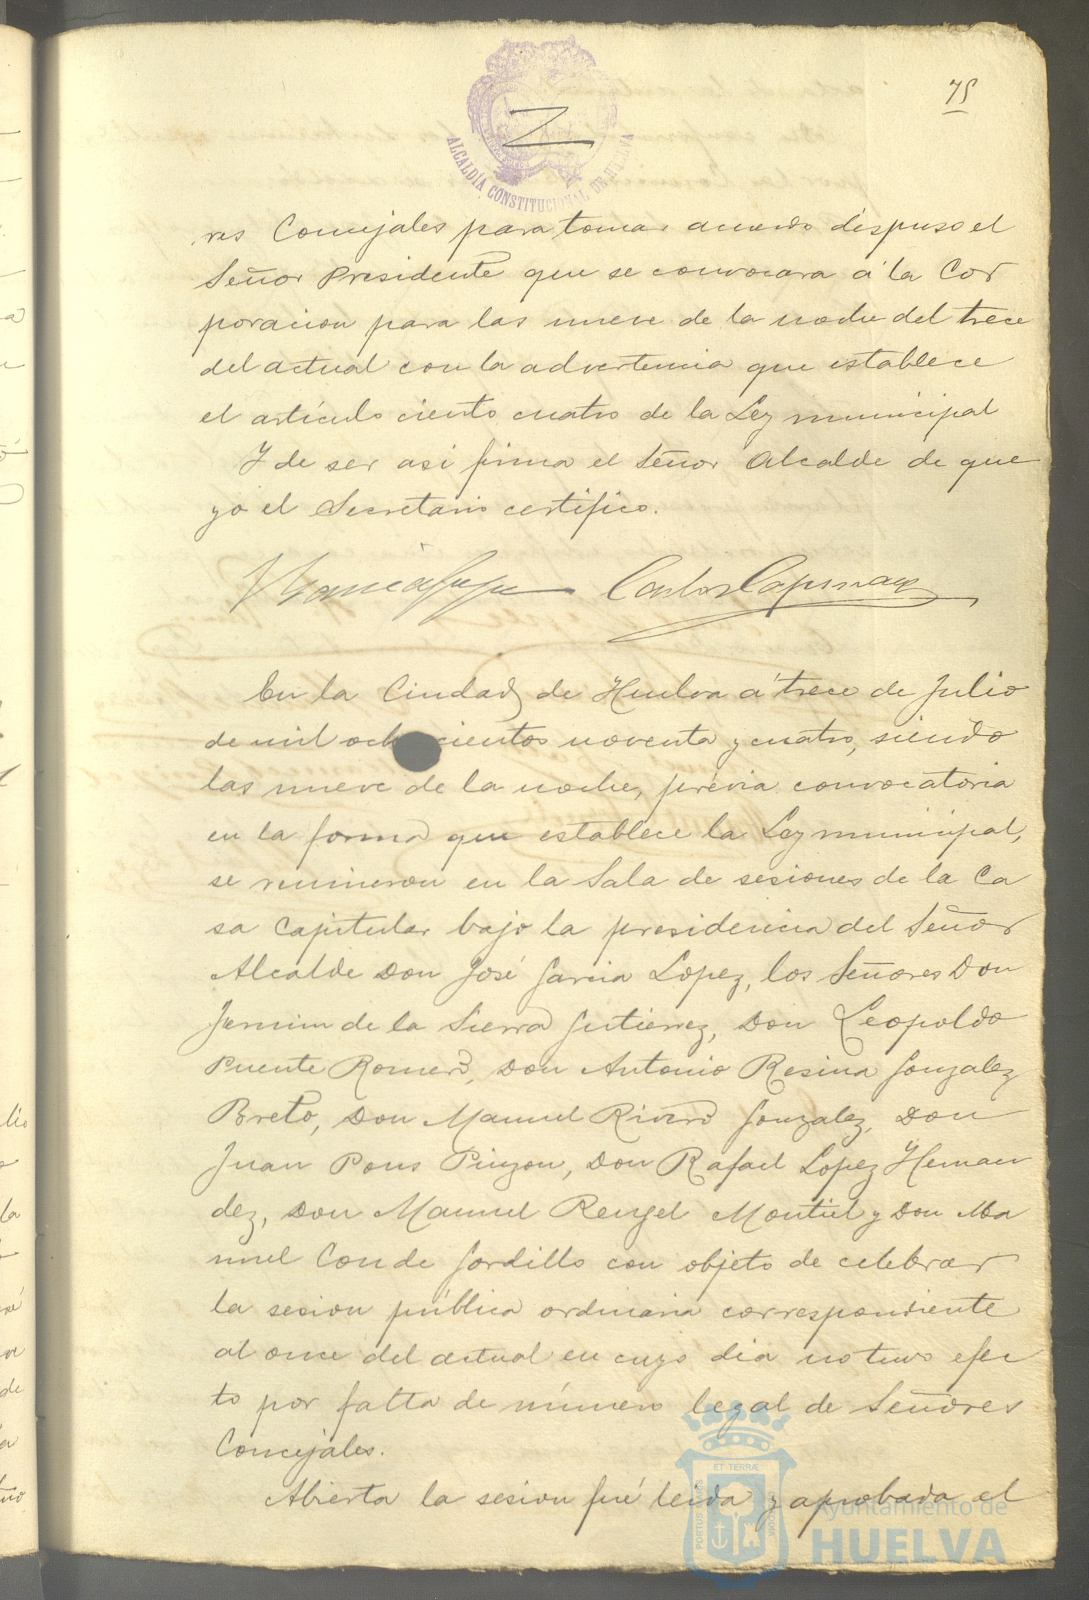 75
ALCALDÍA CONSTITUCIONAL DE HUELVA
res Concejales para tomar acuerdo dispuso el
Señor Presidente que se convocara á la Cor
poracion para las nueve de la noche del trece
del actual con la advertencia que establece
el artículo ciento cuatro de la Ley municipal
Y de ser asi firma el Señor Alcalde de que
yo el Secretario certifico.
En la Ciudad de Huelva á trece de Julio
de mil ochocientos noventa y cuatro, siendo
las nueve de la noche, prévia convocatoria
en la forma que establece la Ley municipal,
se reunieron en la Sala de sesiones de la Ca
sa Capitular bajo la presidencia del Señor
Alcalde Don José Garcia Lopez, los Señores Don
de la Sierra Gutierrez, Don Leopoldo
Puente Romero, Don Antonio Resina Gonzalez
Breto, Don Manuel Rivero Gonzalez, Don
Juan Pons Pinzon, Don Rafael Lopez Hernan
dez, Don Manuel Rengel Montiel y Don Ma
nuel Conde Gordillo con objeto de celebrar
la sesion pública ordinaria correspondiente
al once del actual en cuyo dia no tuvo efec
to por falta de número legal de Señores
Concejales.
Abierta la sesion fué leida y aprobada el
PORTUS MARIS
ET TERRÆ
CUSTODIA
Ayuntamiento de
HUELVA